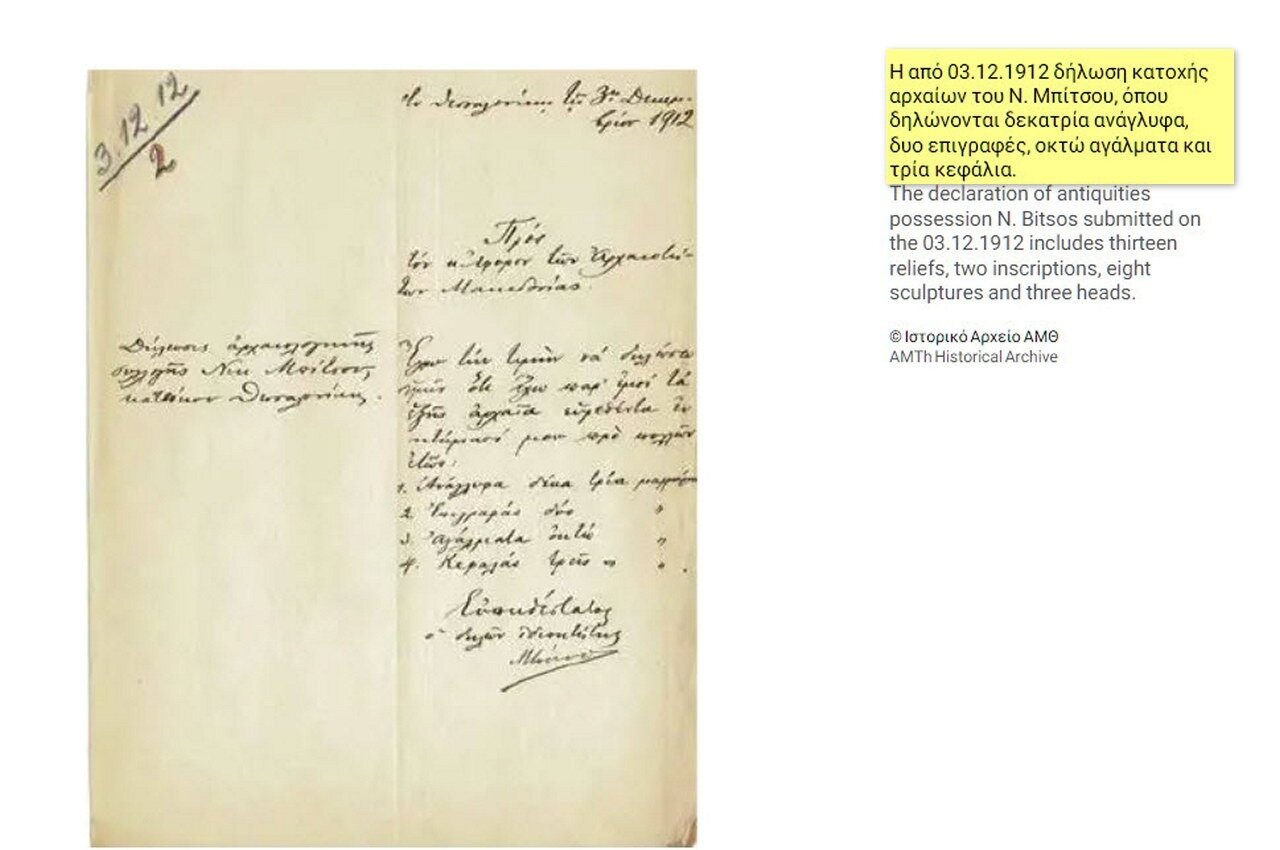 3.12.12
2
ἐν Θεσσαλονίκῃ τῇ 3ῃ Δεκεμ-
βρίου 1912
Πρὸς
τὸν κ. Ἔφορον τῶν Ἀρχαιοτή-
των Μακεδονίας.
Δήλωσις ἀρχαιολογικῆς
συλλογῆς Νικ Μπίτσου,
κατοίκου Θεσσαλονίκης.
Ἔχω τὴν τιμὴν νὰ δηλώσω
ὑμῖν ὅτι ἔχω παρ' ἐμοὶ τὰ
ἑξῆς ἀρχαῖα εὑρεθέντα ἐν
κτήματί μου πρὸ πολλῶν
ἐτῶν:
1. Ἀνάγλυφα δέκα τρία
2. Ἐπιγραφὰς δύο "
3. Ἀγάλματα ὀκτὼ "
4. Κεφαλὰς τρεῖς " " .
Εὐπειθέστατος
ὁ δηλῶν ἰδιοκτήτης
Η από 03.12.1912 δήλωση κατοχής
αρχαίων του Ν. Μπίτσου, όπου
δηλώνονται δεκατρία ανάγλυφα,
δυο επιγραφές, οκτώ αγάλματα και
τρία κεφάλια.
The declaration of antiquities
possession N. Bitsos submitted on
the 03.12.1912 includes thirteen
reliefs, two inscriptions, eight
sculptures and three heads.
© Ιστορικό Αρχείο ΑΜΘ
AMTh Historical Archive